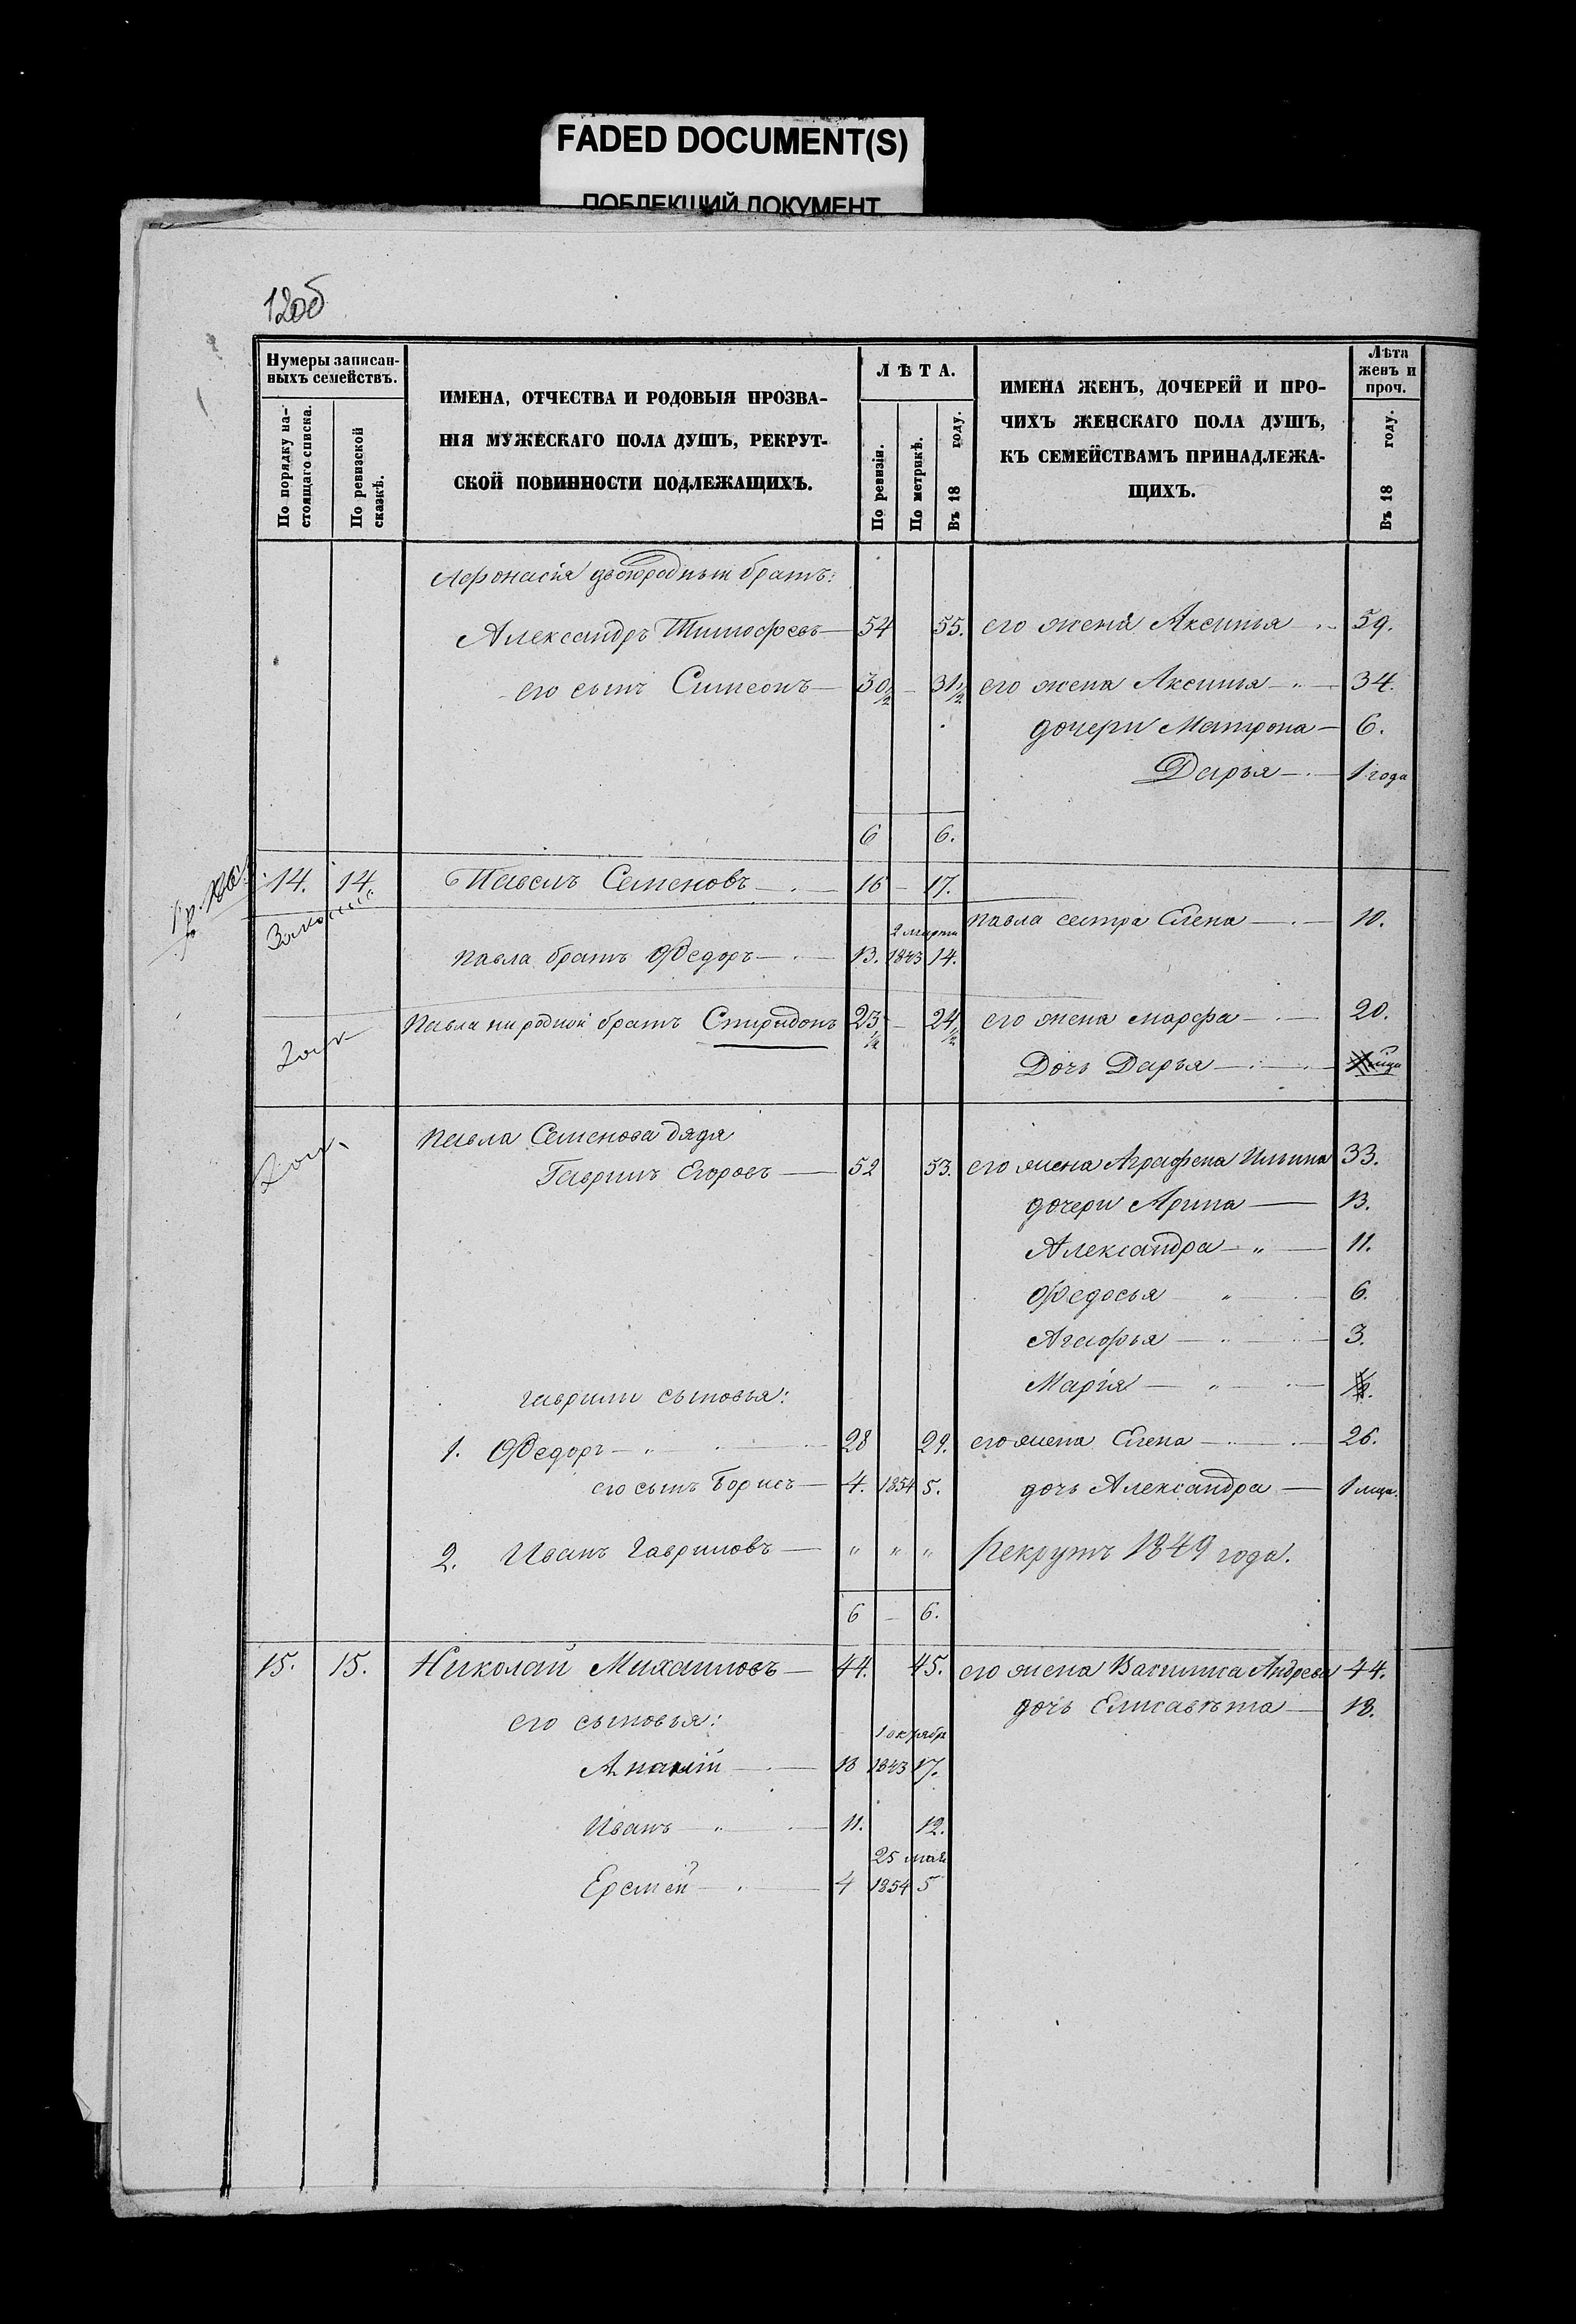 FADED DOCUMENT(S)
ПОБЛЕКШИЙ ДОКУМЕНТ
12об
Нумеры записан-
ныхъ семействъ.
По порядку на-
стоящаго списка.
По ревизской
сказкѣ.
ИМЕНА, ОТЧЕСТВА И РОДОВЫЯ ПРОЗВА-
НІЯ МУЖЕСКАГО ПОЛА ДУШЪ, РЕКРУТ-
СКОЙ ПОВИННОСТИ ПОДЛЕЖАЩИХЪ.
ЛѢТА.
По ревизіи.
По метрикѣ.
Въ 18 году.
ИМЕНА ЖЕНЪ, ДОЧЕРЕЙ И ПРО-
ЧИХЪ ЖЕНСКАГО ПОЛА ДУШЪ,
КЪ СЕМЕЙСТВАМЪ ПРИНАДЛЕЖА-
ЩИХЪ.
Лѣта
женъ и
проч.
Въ 18 году.
Афонасія двоюродный братъ:
Александръ Тимофеевъ — 54 55. его жена Аксинья 59.
его сынъ Симеонъ — 30 1/2 — 31 1/2 его жена Аксинья — 34.
дочери Матрона — 6.
Дарья — 1 года
6 6.
14. 14. Павелъ Семеновъ — 16 — 17.
Павла сестра Елена — 10.
2 марта
Павла братъ Федоръ — 13. 1843 14.
Павла неродной братъ Спиридонъ 23 1/2 — 24 1/2 его жена Марфа — 20.
Дочь Дарья —
Павла Семенова дядя
Гаврилъ Егоровъ — 52 53. его жена Аграфена Ильина 33.
дочери Арина — 13.
Александра — " — 11.
Федосья " — 6.
Агафья — " — 3.
Марія — " —
Гаврилы сыновья:
1. Федоръ — " — 28 29. его жена Елена — 26.
его сынъ Борисъ — 4. 1854 5. дочь Александра — 1 мца.
2. Иванъ Гавриловъ — " " " Рекрутъ 1849 года.
6 — 6.
15. 15. Николай Михаиловъ — 44. 45. его жена Василиса Андреева 44.
дочь Елисавѣта — 18.
его сыновья:
1 октября
Ананій — 13 1843 17.
Иванъ — " — 11. 12.
25 мая
Еремѣй — 4 1854 5